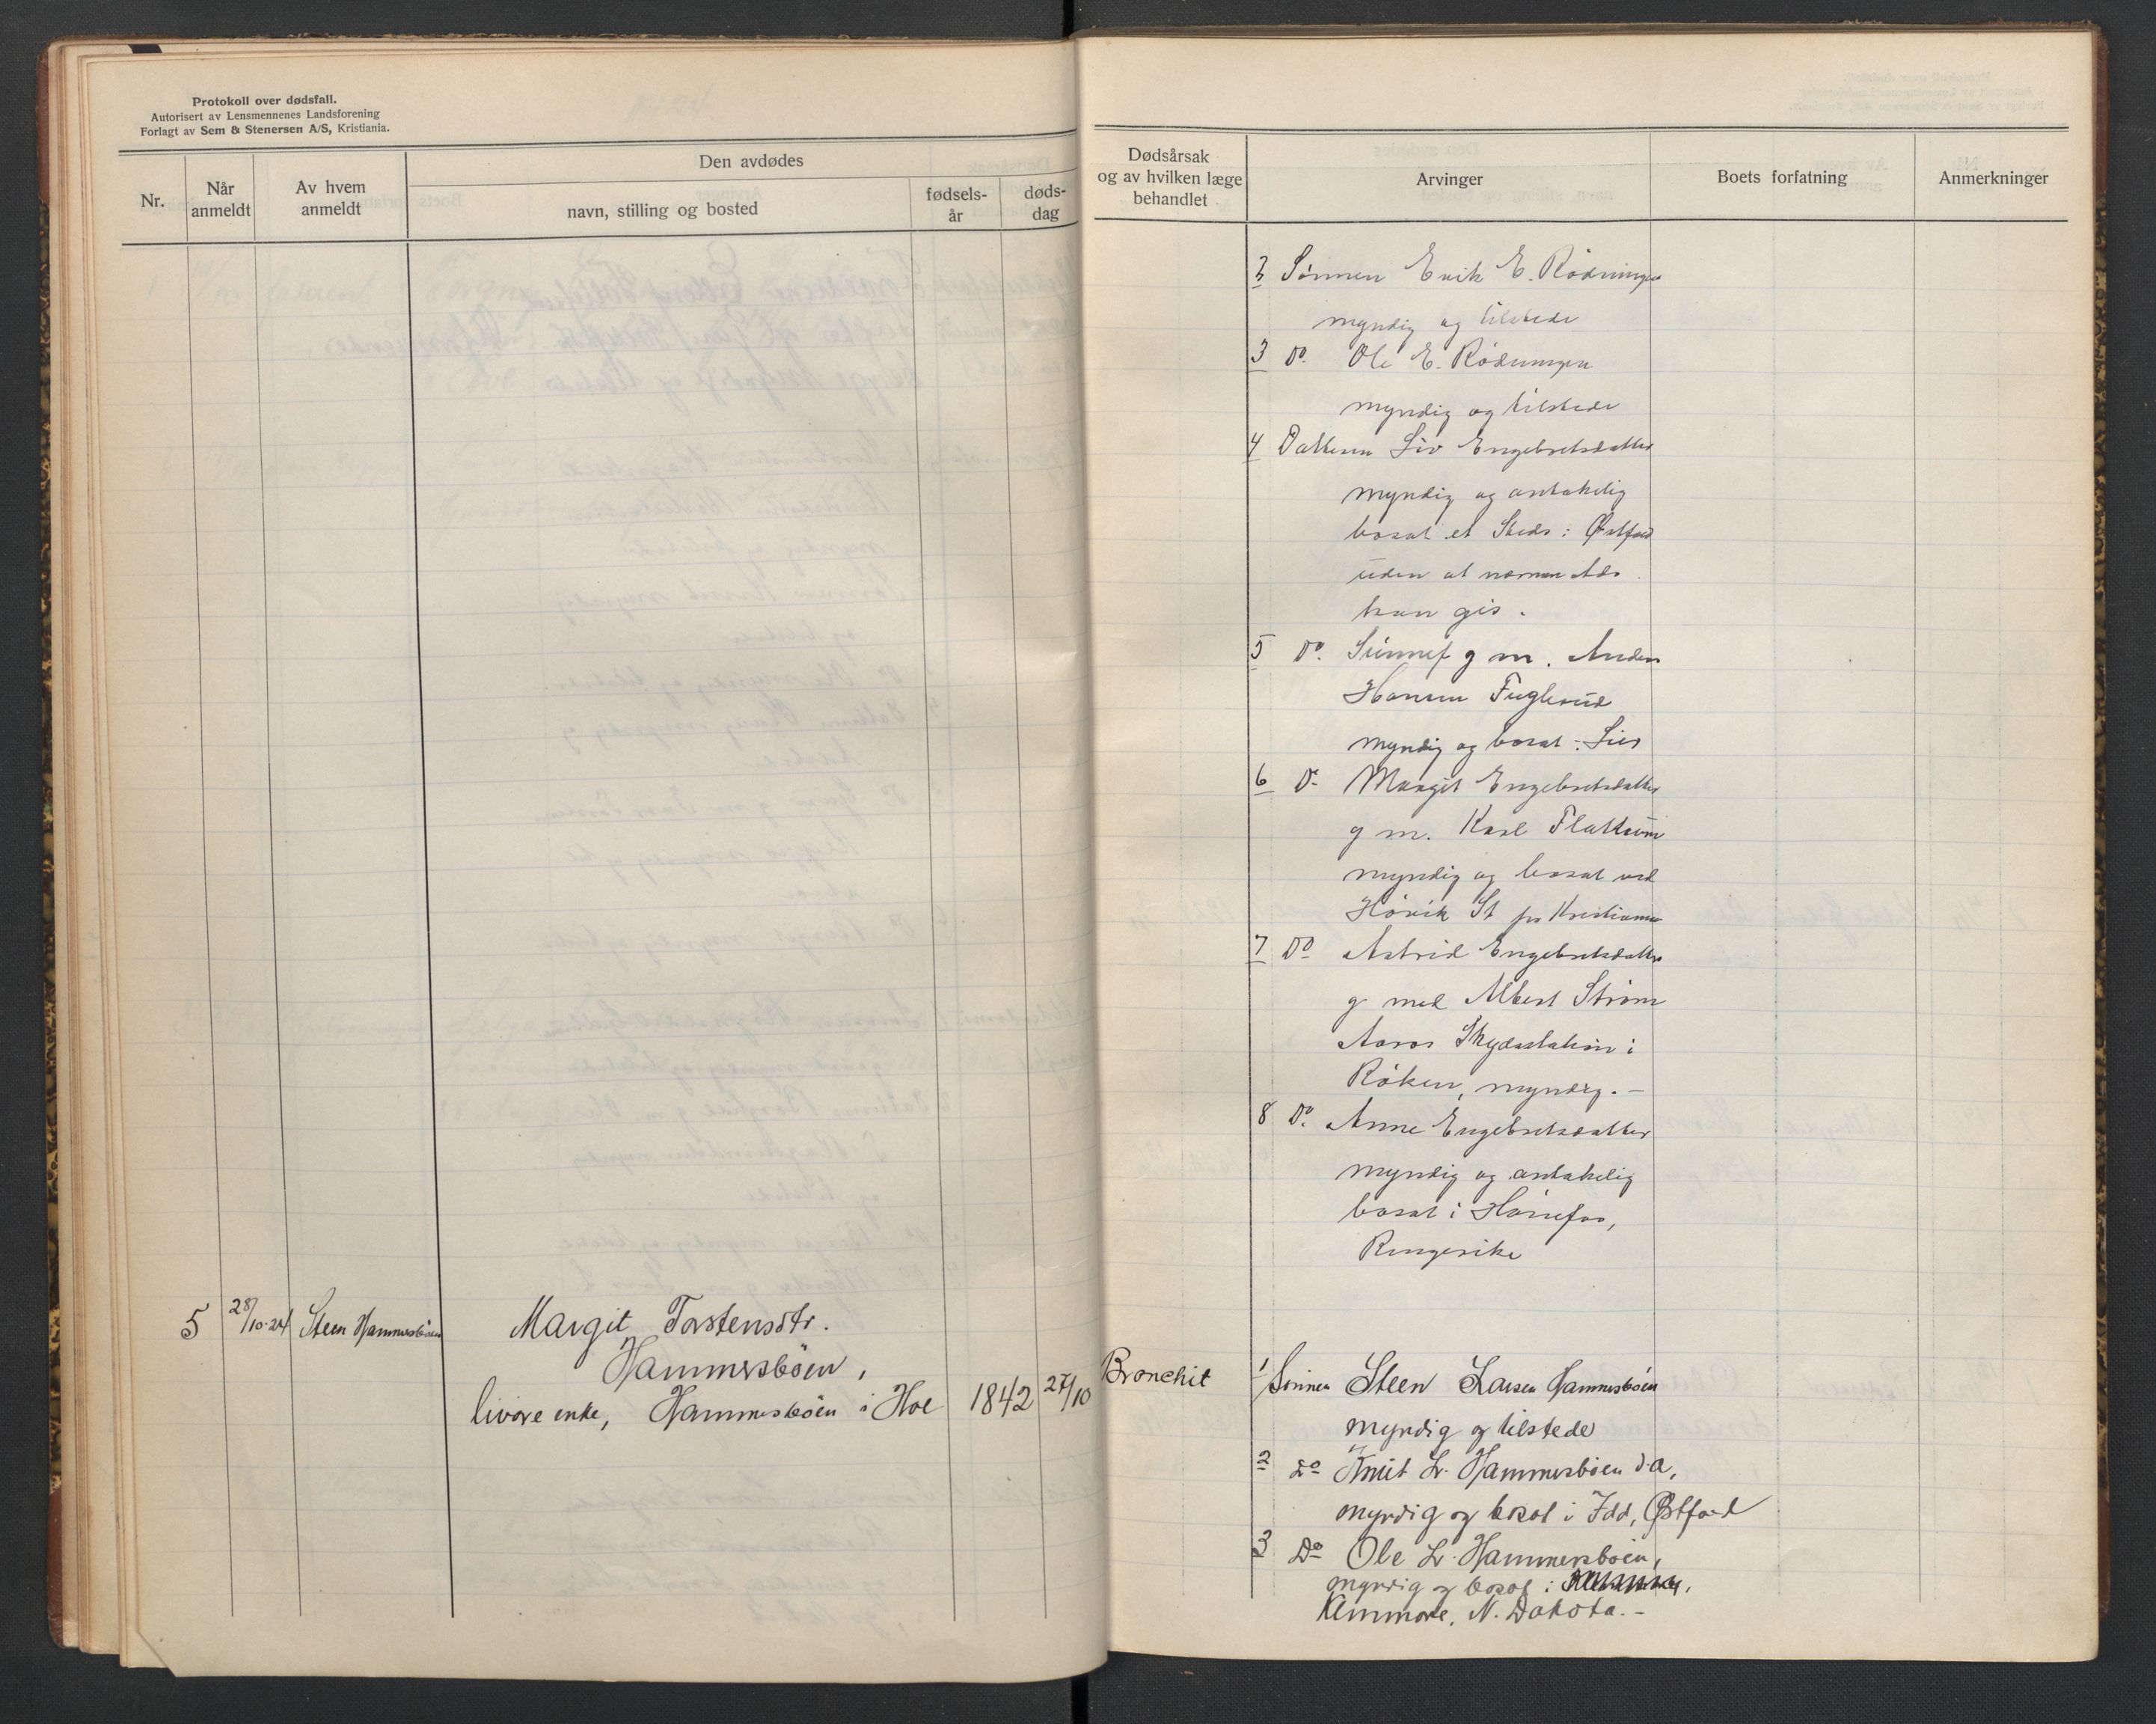 Protokoll over dødsfall.
Autorisert av Lensmennenes Landsforening
Forlagt av Sem & Stenersen A/S, Kristiania.
Nr.
Når anmeldt
Av hvem anmeldt
Den avdødes
navn, stilling og bosted
fødsels-år
døds-dag
5 28/10-24 Steen Hammersbøen
Margit Torstensdtr.
Hammersbøen,
livøre enke, Hammersbøen i Hol 1842 27/10
Dødsårsak
og av hvilken læge
behandlet
Arvinger
Boets forfatning
Anmerkninger
2 Sønnen Erik E. Rødningen
myndig og tilstede
3 Do. Ole E. Rødningen
myndig og tilstede
4 Datteren Liv Engebretsdatter
myndig og antakelig
bosat et Steds i Østfold
uden at Ads
kan gis.
5 Do. Sünnef g m. Anders
Hansen Fuglerud
myndig og bosat i Lier
6 Do Margit Engebretsdatter
g m. Karl Flattum
myndig og bosat ved
Høvik St pr Kristiania
7 Do Astrid Engebretsdatter
g med Albert Strøm
Aaros Skydsstation i
Røken, myndig. -
8 Do. Anne Engebretsdatter
myndig og antakelig
bosat i Hønefos,
Ringerike
Bronchit
1 Sønnen Steen Larsen Hammersbøen
myndig og tilstede
2 Do Knut L. Hammersbøen d.a,
myndig og bosat i Idd, Østfold
3 Do Ole L. Hammersbøen,
myndig og bosat i
Kenmare, N. Dakota. -